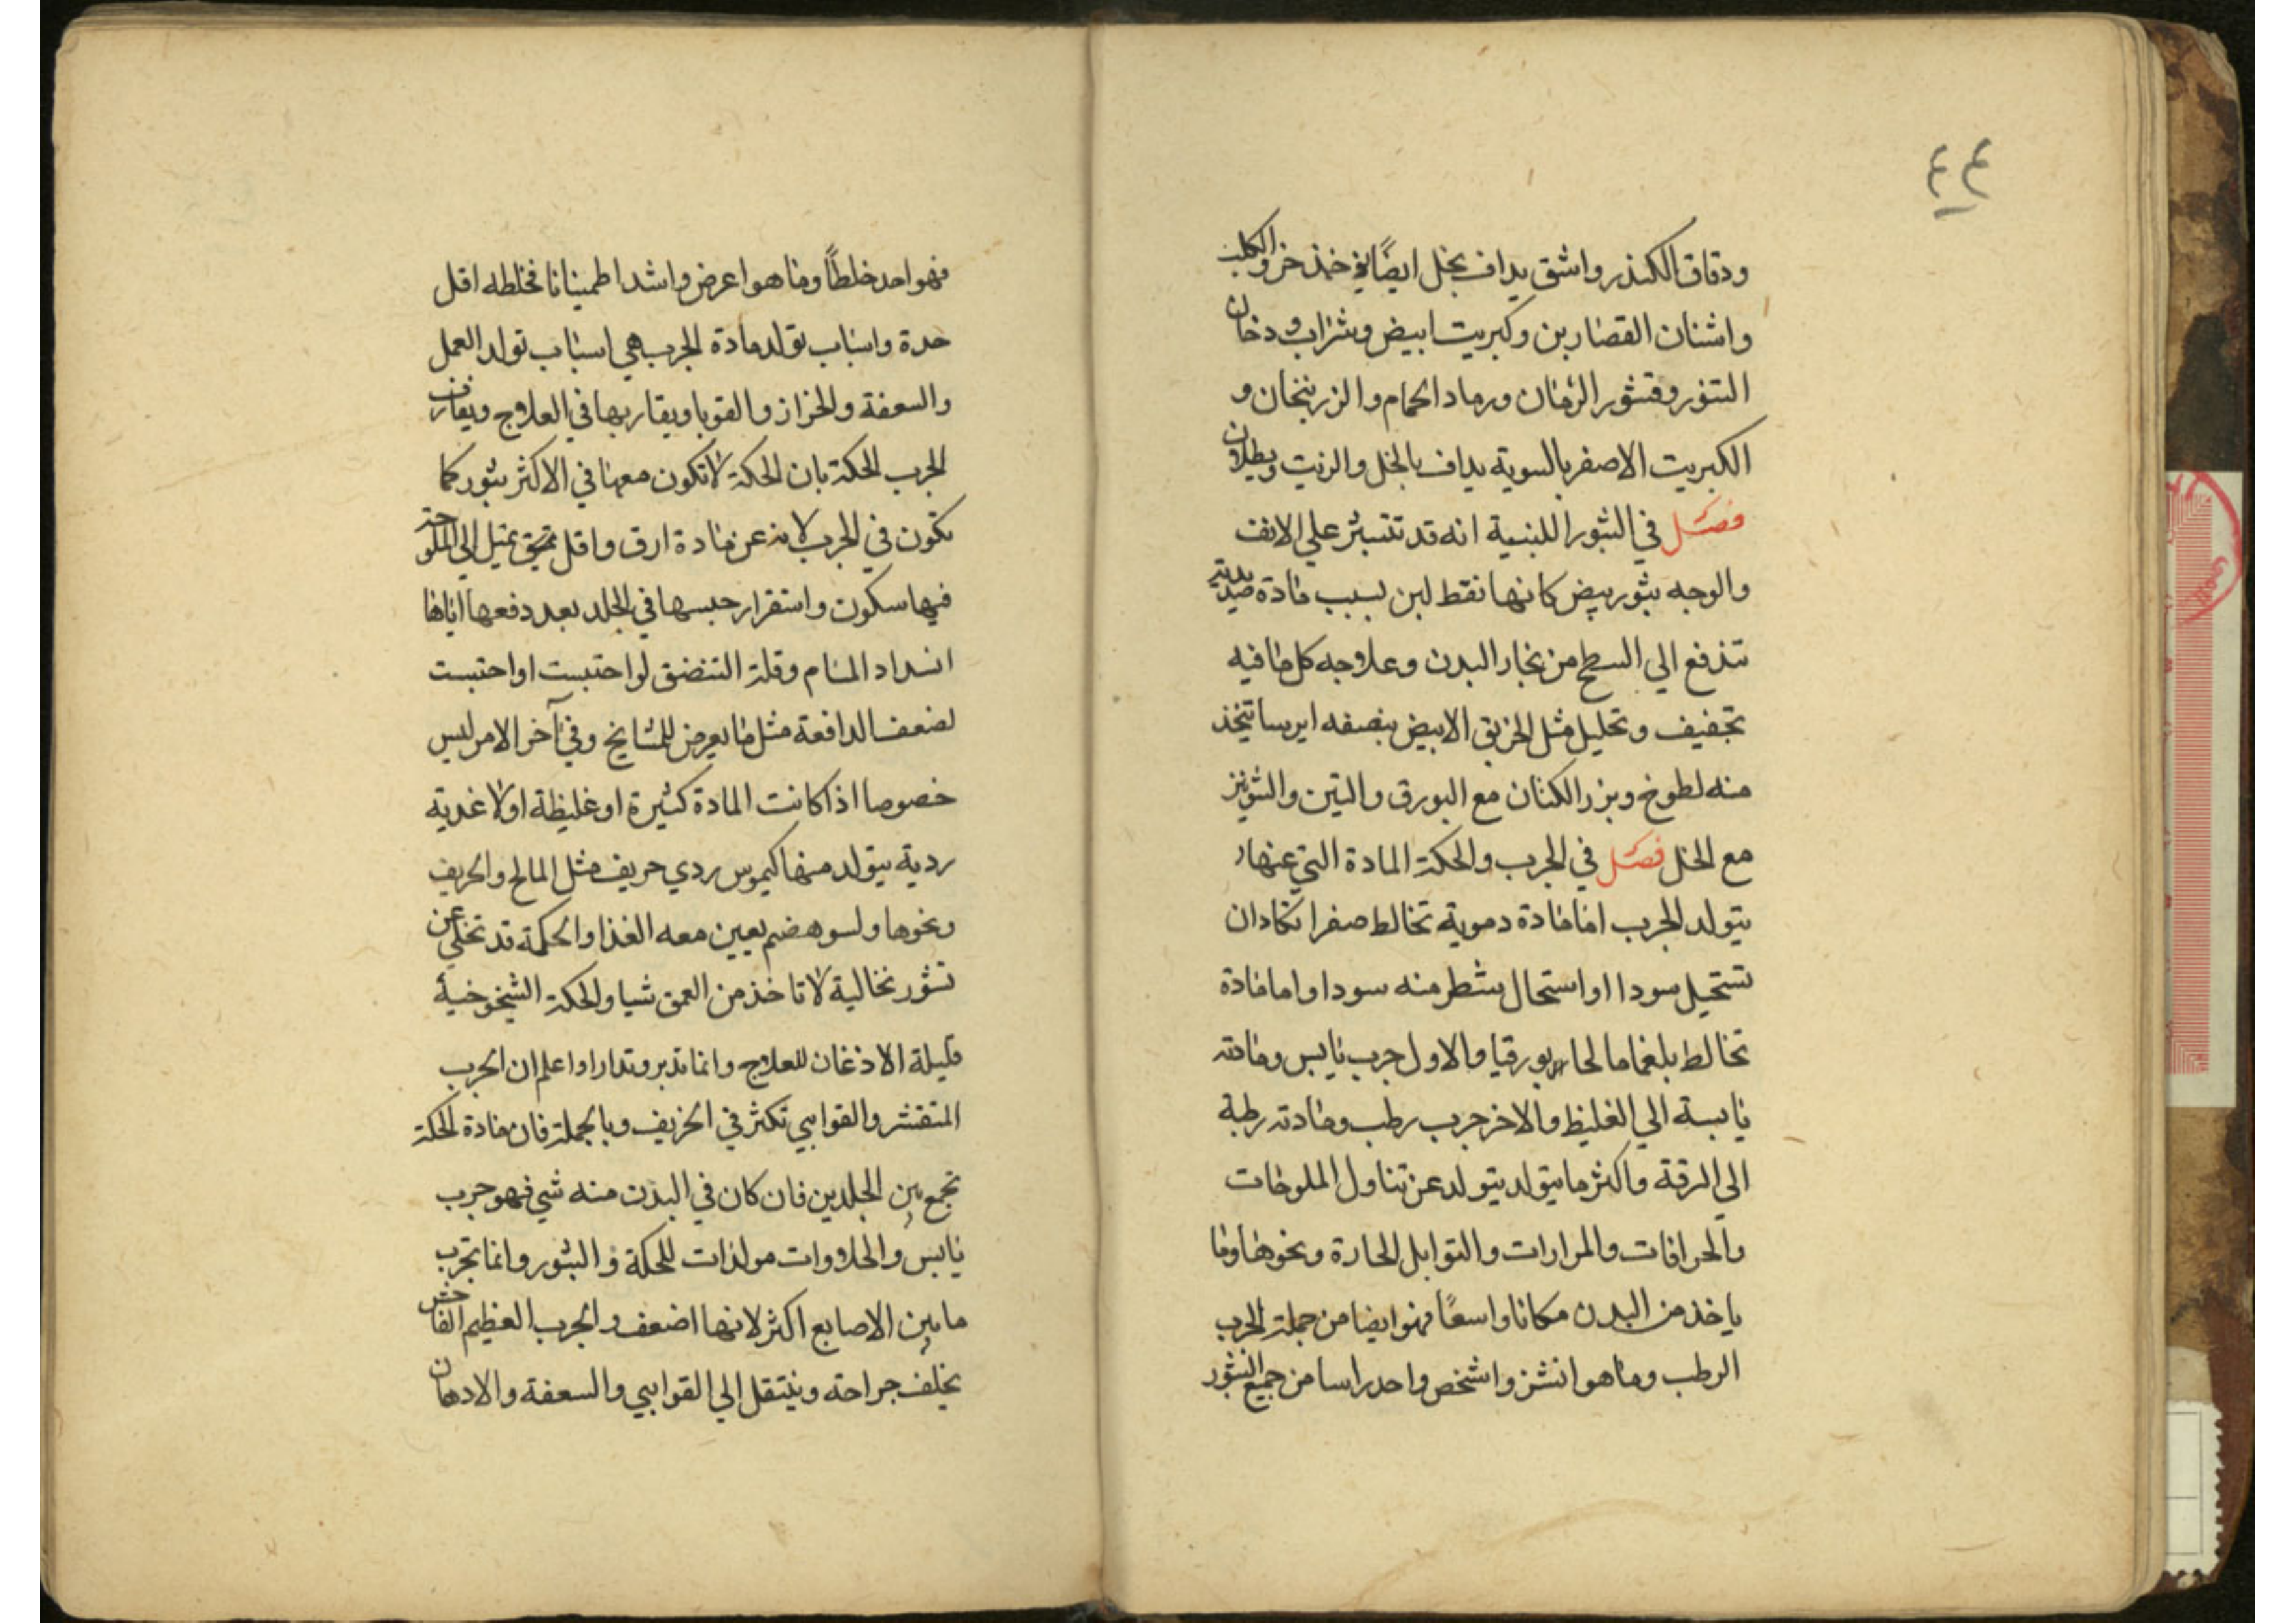 ٤٤
ودقاق الكندر واشق يداف بخل ايضًا يوخذ خرو الكلب
واشنان القصارين وكبريت ابيض وشراب ودخان
التنور وقشور الرمان ورماد الحمام والزرنيخان و
الكبريت الاصفر بالسوية يداف بالخل والزيت ويطلان
فصل في البثور اللبنية انه قد تتبثر علي الانف
والوجه بثور بيض كانها نقط لبن بسبب مادة صديدية
تندفع الي السطح من بخار البدن وعلاجه كل ما فيه
تجفيف وتحليل مثل الخربق الابيض بنصفه ايرسا تتخذ
منه لطوخ وبزر الكتان مع البورق والتين والشونيز
مع الخل فصل في الجرب والحكة المادة التي عنها
يتولد الجرب اما مادة دموية تخالط صفرا تكاد ان
تستحيل سودا او استحال شطر منه سودا واما مادة
تخالط بلغما مالحا بورقيا والاول جرب يابس ومادته
يابسة الي الغليظ والاخر جرب رطب ومادته رطبة
الي الرقة واكثر ما يتولد يتولد عن تناول الملوحات
والحرافات والمرارات والتوابل الحارة ونحوها وما
ياخذ من البدن مكانا واسعًا فهو ايضا من جملة الجرب
الرطب وما هو انشز واشخص واحد راسا من جميع البثور
فهو احد خلطًا وما هو اعرض واشد اطمينانا فخلطه اقل
حدة واسباب تولد مادة الجرب هي اسباب تولد العمل
والسعفة والحزاز والقوبا ويقاربها في العلاج ويفارق
الجرب الحكة بان الحكة لا تكون معها في الاكثر بثور كما
تكون في الجرب لانه عن مادة ارق واقل تميل الي الملوحة
فيها سكون واستقرار حبسها في الجلد بعد دفعها اياها
انسداد المسام وقلة التنضق لو احتبست او احتبست
لضعف الدافعة مثل ما يعرض للمشايخ وفي آخر الامر ليس
خصوصا اذا كانت المادة كثيرة او غليظة او لاغدية
ردية يتولد منها كيموس ردي حريف مثل المالح والحريف
ونحوها ولسو هضم يعين معه الغذا والحكة قد تخلي عن
تشور نخالية لا تاخذ من العمق شيا والحكة الشيخوخية
قليلة الاذغان للعلاج وانما تدبر وتدارا واعلم ان الجرب
المتقشر والقوابي تكثر في الخريف وبالجملة فان مادة الحكة
تجمع بين الجلدين فان كان في البدن منه شي فهو جرب
يابس والحلاوات مولدات للحكة والبثور وانما تجرب
ما بين الاصابع اكثر لانها اضعف والجرب العظيم الفاحش
يخلف جراحته وينتقل الي القوابي والسعفة والادهان